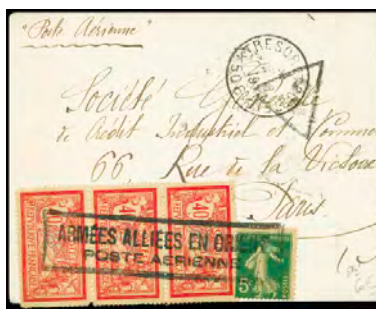 "Poste Aérienne"
TRESOR
Société Générale
de Crédit Industriel et Commer
66, Rue de la Victoire
Paris
40 40 40
REPUBLIQUE FRANÇAISE
ARMÉES ALLIÉES EN ORIENT
POSTE AERIENNE
5